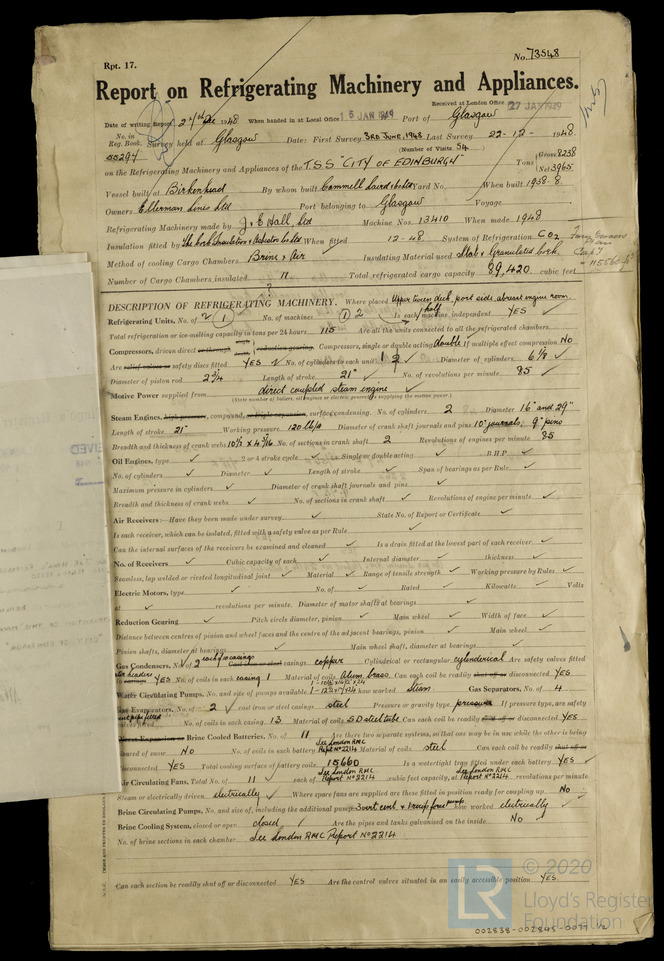 Rpt. 17.
No. 73548
Report on Refrigerating Machinery and Appliances.
Received at London Office 27 JAN 1949
Date of writing Report 24th Dec 1948 When handed in at Local Office 15 JAN 1949 Port of Glasgow
No. in Reg. Book. Survey held at Glasgow Date: First Survey 3RD June, 1948 Last Survey 22-12-1948
55294 (Number of Visits 54)
on the Refrigerating Machinery and Appliances of the T.S.S "CITY OF EDINBURGH" Tons Gross 8238 Net 3965
Vessel built at Birkenhead By whom built Cammell Laird & Co Ltd Yard No. When built 1938-8
Owners Ellerman Lines Ltd Port belonging to Glasgow Voyage
Refrigerating Machinery made by J & E Hall, Ltd Machine Nos. 13410 When made 1948
Insulation fitted by The Cork Insulation & Asbestos Co Ltd When fitted 12-48 System of Refrigeration CO2
Method of cooling Cargo Chambers Brine & Air Insulating Material used Slab & Granulated Cork
Number of Cargo Chambers insulated 11 Total refrigerated cargo capacity 89,420 cubic feet
DESCRIPTION OF REFRIGERATING MACHINERY. Where placed Upper tween deck, port side, abreast engine room.
Refrigerating Units, No. of 2 (1) No. of machines (1) 2 Is each half machine independent YES
Total refrigeration or ice-melting capacity in tons per 24 hours 115 Are all the units connected to all the refrigerated chambers
Compressors, driven direct or through reduction gearing. Compressors, single or double acting double If multiple effect compression NO
Are relief valves or safety discs fitted YES No. of cylinders to each unit 2 Diameter of cylinders 6 1/8
Diameter of piston rod 2 3/4 Length of stroke 21" No. of revolutions per minute 85
Motive Power supplied from direct coupled steam engine
(State number of boilers, oil engines or electric generators supplying the motive power.)
Steam Engines, high pressure, compound, or triple expansion, surface condensing. No. of cylinders 2 Diameter 16" and 29"
Length of stroke 21" Working pressure 120 lb/□ Diameter of crank shaft journals and pins 10" journals, 9" pins
Breadth and thickness of crank webs No. of sections in crank shaft 2 Revolutions of engines per minute 85
Oil Engines, type 2 or 4 stroke cycle Single or double acting B.H.P.
No. of cylinders Diameter Length of stroke Span of bearings as per Rule
Maximum pressure in cylinders Diameter of crank shaft journals and pins
Breadth and thickness of crank webs No. of sections in crank shaft Revolutions of engine per minute
Air Receivers:—Have they been made under survey State No. of Report or Certificate
Is each receiver, which can be isolated, fitted with a safety valve as per Rule
Can the internal surfaces of the receivers be examined and cleaned Is a drain fitted at the lowest part of each receiver
No. of Receivers Cubic capacity of each Internal diameter thickness
Seamless, lap welded or riveted longitudinal joint Material Range of tensile strength Working pressure by Rules
Electric Motors, type No. of Rated Kilowatts Volts
at revolutions per minute. Diameter of motor shafts at bearings
Reduction Gearing Pitch circle diameter, pinion Main wheel Width of face
Distance between centres of pinion and wheel faces and the centre of the adjacent bearings, pinion Main wheel
Pinion shafts, diameter at bearings Main wheel shaft, diameter at bearings
Gas Condensers, No. of 2 Cast iron or steel casings copper Cylindrical or rectangular cylinderical Are safety valves fitted
YES No. of coils in each casing 1 Material alum. brass. Can each coil be readily shut off or disconnected YES
Water Circulating Pumps, No. and size of pumps available how worked steam Gas Separators, No. of 4
Gas Evaporators, No. of 2 cast iron or steel casings steel Pressure or gravity type pressure If pressure type, are safety
No. of coils in each casing 13 Material of coils S D steel tube Can each coil be readily shut off or disconnected YES
Direct Expansion or Brine Cooled Batteries, No. of 11 Are there two separate systems, so that one may be in use while the other is being
cleared of snow NO No. of coils in each battery See London RMC Rept No 2214 Material of coils steel Can each coil be readily shut off or
disconnected YES Total cooling surface of battery coils 15660 Is a watertight tray fitted under each battery YES
Air Circulating Fans, Total No. of 11 each of See London RMC Report No 2214 cubic feet capacity, at See London RMC Report No 2214 revolutions per minute
Steam or electrically driven electrically Where spare fans are supplied are these fitted in position ready for coupling up NO
Brine Circulating Pumps, No. and size of, including the additional pump how worked electrically
Brine Cooling System, closed or open closed Are the pipes and tanks galvanised on the inside NO
No. of brine sections in each chamber See London RMC Report No 2214
Can each section be readily shut off or disconnected YES Are the control valves situated in an easily accessible position YES.
© 2020
LR
Lloyd's Register
Foundation
002838-002845-0077 1/2